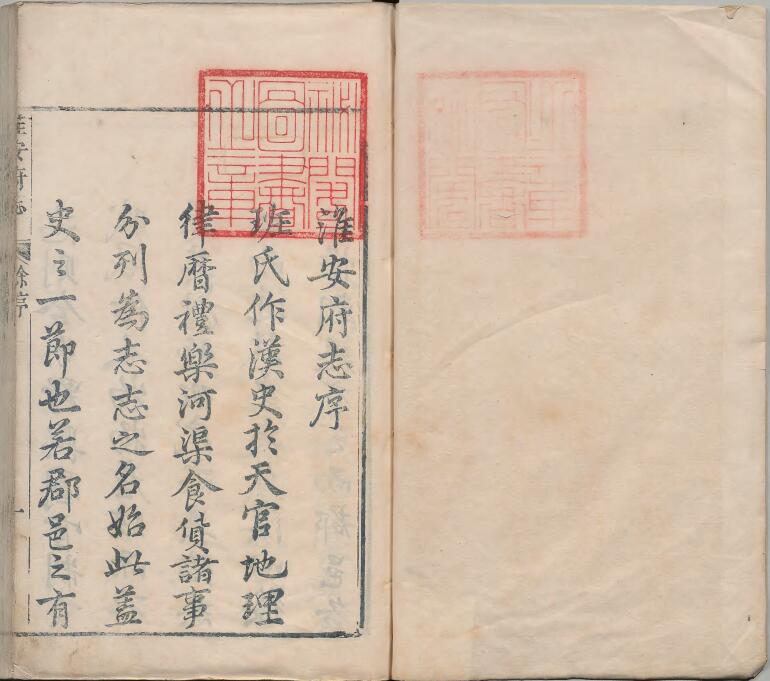 淮安府志序
班氏作漢史於天官地理
律曆禮樂河渠食貨諸事
分列為志志之名始此蓋
史之一節也若郡邑之有
淮安府志
徐序
一